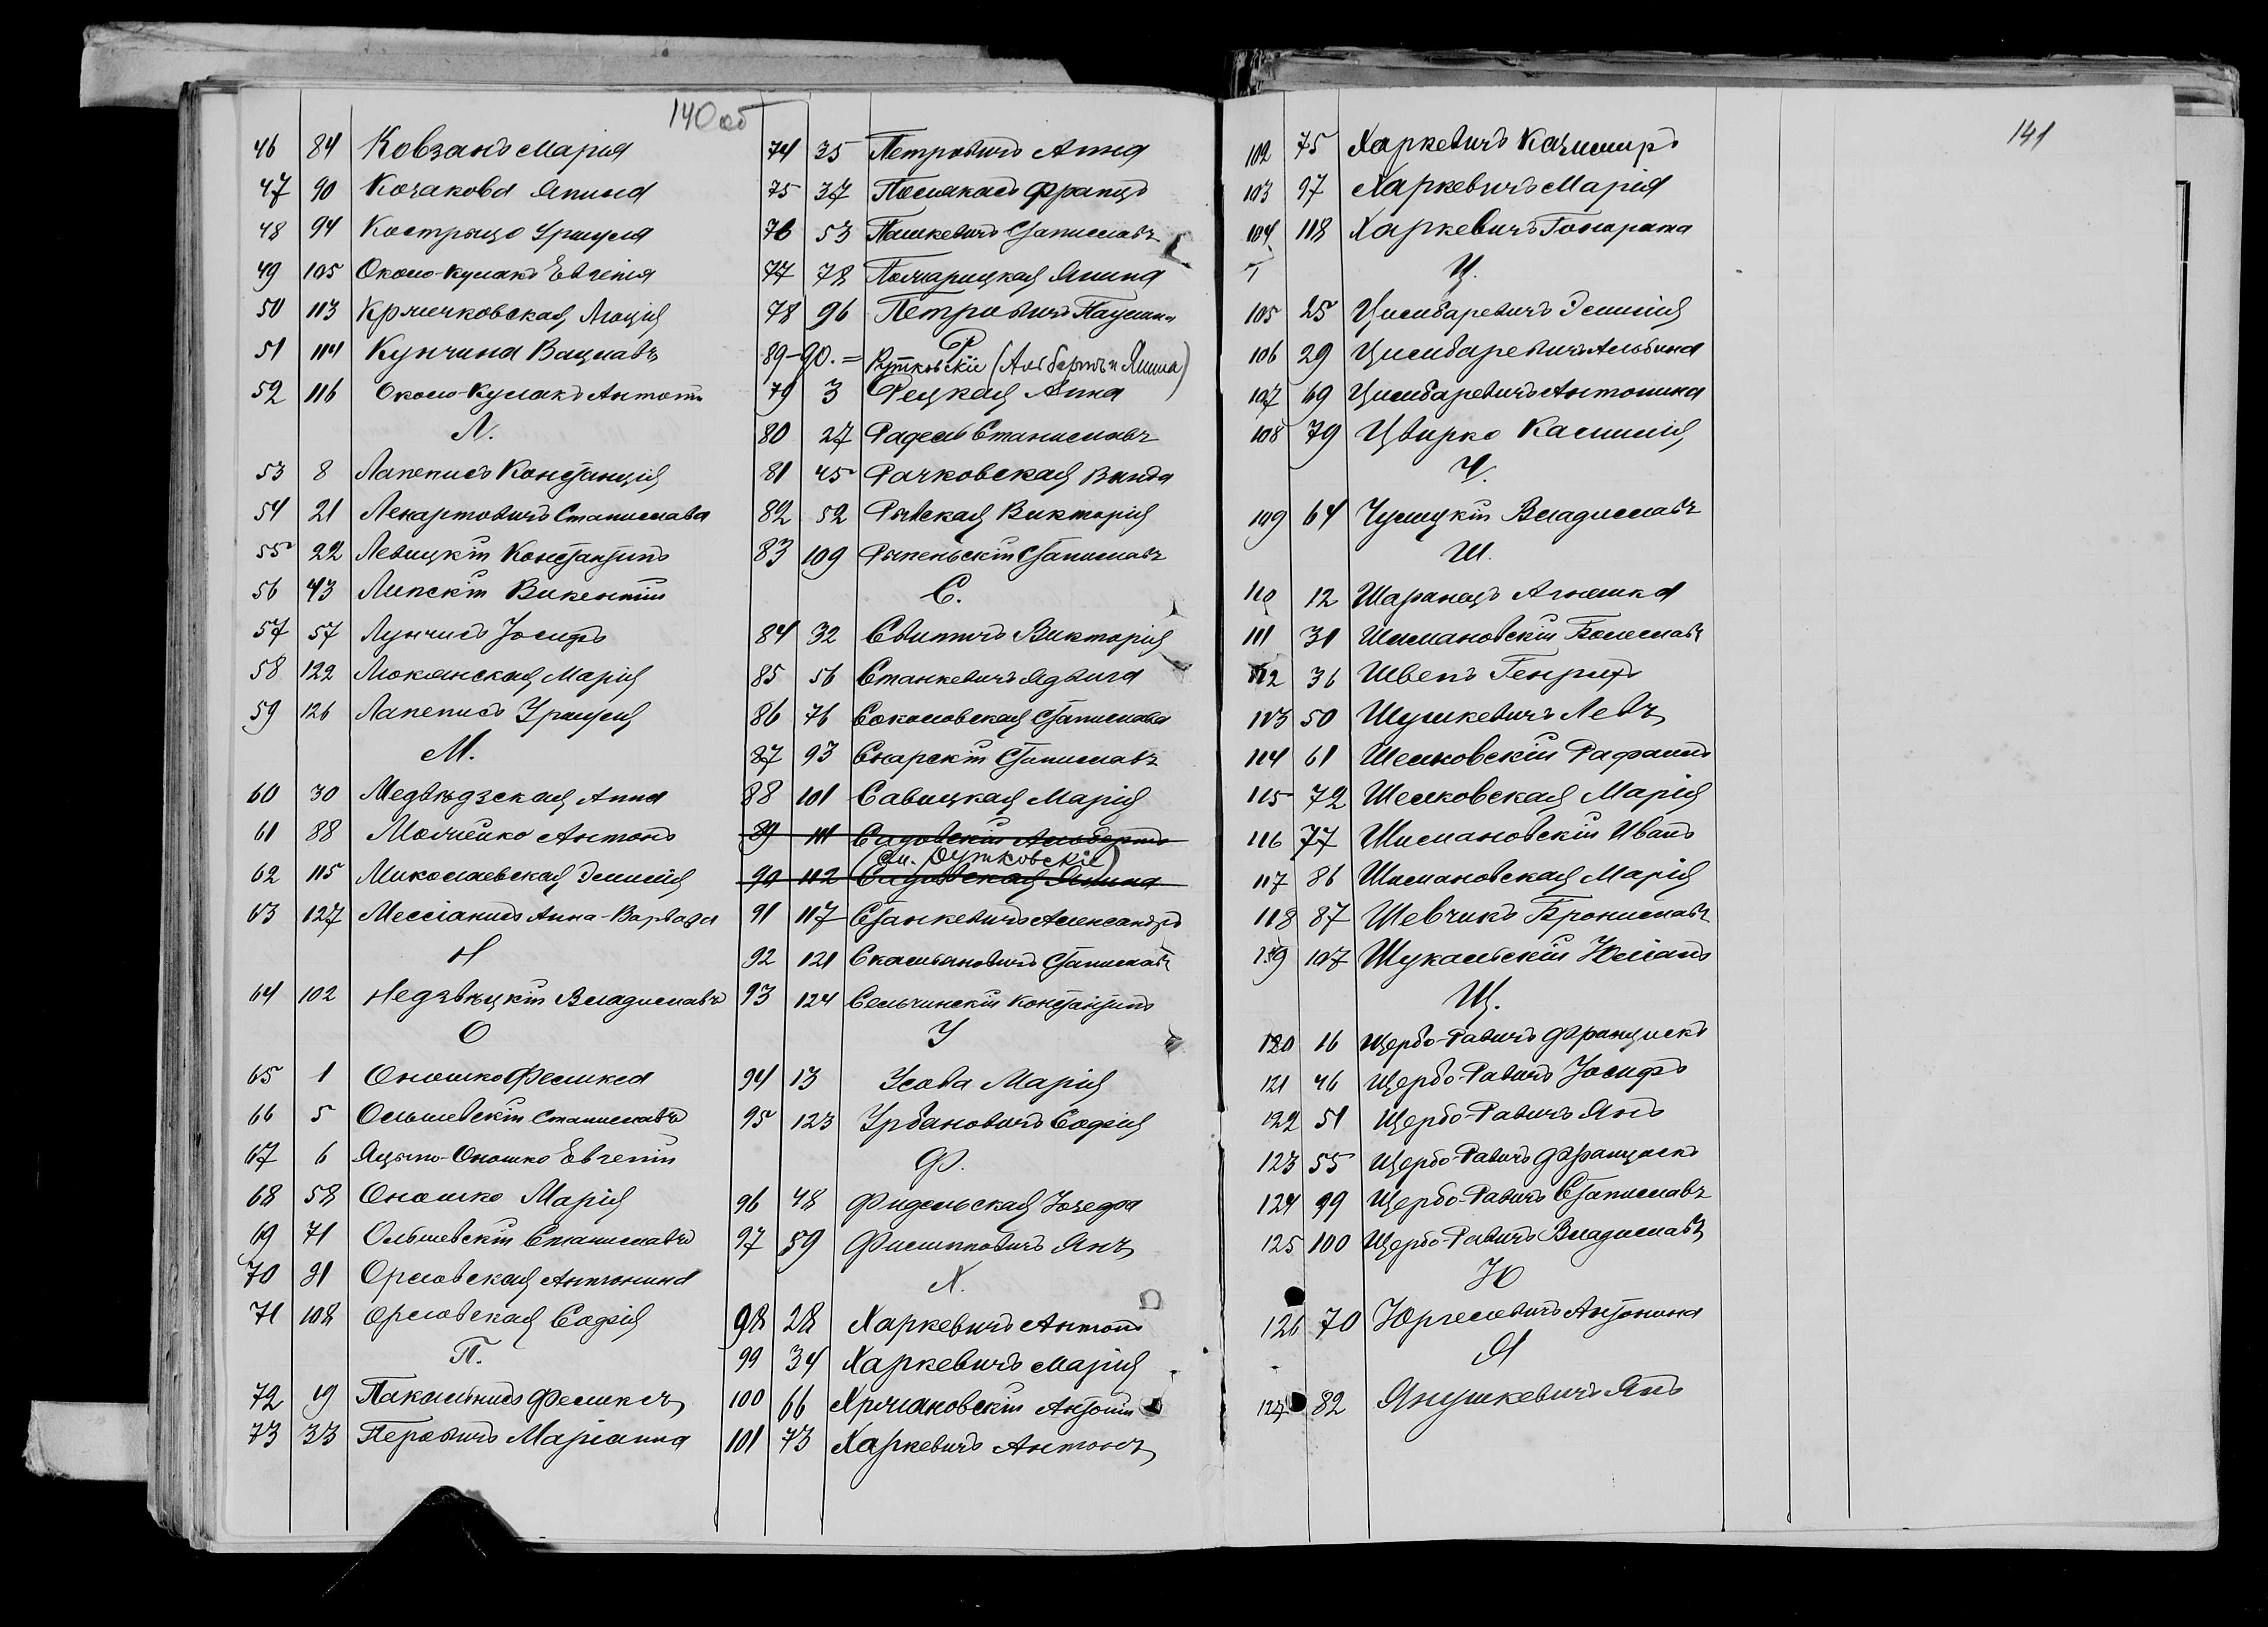 140 об
46 84 Ковзанъ Марія
47 90 Козакова Янина
48 94 Кострыцо Уршуля
49 105 Около-Кулакъ Евгенія
50 113 Кржечковская Люція
51 114 Кунчина Вацлавъ
52 116 Около-Кулакъ Антонъ
Л.
53 8 Лапенисъ Констанція
54 21 Ленартовичъ Станислава
55 22 Левицкій Константинъ
56 43 Липскій Викентій
57 57 Лунчисъ Іосифъ
58 122 Люкянская Марія
59 126 Лапенисъ Уршуля
М.
60 30 Медвѣдзская Анна
61 88 Молчейко Антонъ
62 115 Миколаевская Эмилія
63 127 Мессіанисъ Анна-Варвара
Н
64 102 Недзвѣцкій Владиславъ
О
65 1 Оношко Феликса
66 5 Ольшевскій Станиславъ
67 6 Яцыно-Оношко Евгеній
68 58 Оношко Марія
69 71 Ольшевскій Станиславъ
70 91 Орловская Антонина
71 108 Орловская Софія
П.
72 19 Пакальнисъ Феликсъ
73 33 Перовичъ Маріанна
74 35 Петровичъ Анна
75 37 Полякасъ Францъ
76 53 Пашкевичъ Станиславъ
77 78 Полчарицкая Янина
78 96 Петровичъ Паулин
Р
89-90.= Рутковскіе (Альбертъ и Янина)
79 3 Рецкая Анна
80 27 Радель Станиславъ
81 45 Рачковская Ванда
82 52 Рывская Викторія
83 109 Рыпеньскій Станиславъ
С.
84 32 Свитичъ Викторія
85 56 Станкевичъ Ядвига
86 76 Соколовская Станислава
87 93 Снарскій Станиславъ
88 101 Савицкая Марія
89 111 Садовскій Альбертъ
(см. Рутковскіе)
90 112 Садовская Янина
91 117 Станкевичъ Александръ
92 121 Скальяновичъ Станиславъ
93 124 Сельчинскій Константинъ
У
94 13 Усова Марія
95 123 Урбановичъ Софія
Ф.
96 48 Фидельская Юзефа
97 59 Филипповичъ Янъ
Х.
98 28 Харкевичъ Антонъ
99 34 Харкевичъ Марія
100 66 Хржановскій Антоній
101 73 Харкевичъ Антонъ
141
102 75 Харкевичъ Казимиръ
103 97 Харкевичъ Марія
104 118 Харкевичъ Гонората
Ц.
105 25 Цимбаревичъ Эмилія
106 29 Цимбаревичъ Альбина
107 69 Цимбаревичъ Антонина
108 79 Цвирко Камилія
Ч.
109 64 Чулицкій Владиславъ
Ш.
110 12 Шаранацъ Агнешка
111 31 Шимановскій Болеславъ
112 36 Швенъ Генрихъ
113 50 Шушкевичъ Левъ
114 61 Шелковскій Рафаилъ
115 72 Шелковская Марія
116 77 Шимановскій Иванъ
117 86 Шимановская Марія
118 87 Шевчикъ Брониславъ
119 107 Шукальскій Юліанъ
Щ.
120 16 Щербо-Равичъ Францискъ
121 46 Щербо-Равичъ Іосифъ
122 51 Щербо-Равичъ Янъ
123 55 Щербо-Равичъ Францискъ
124 99 Щербо-Равичъ Станиславъ
125 100 Щербо-Равичъ Владиславъ
Ю
126 70 Юргелевичъ Антонина
Я
127 82 Янушкевичъ Янъ